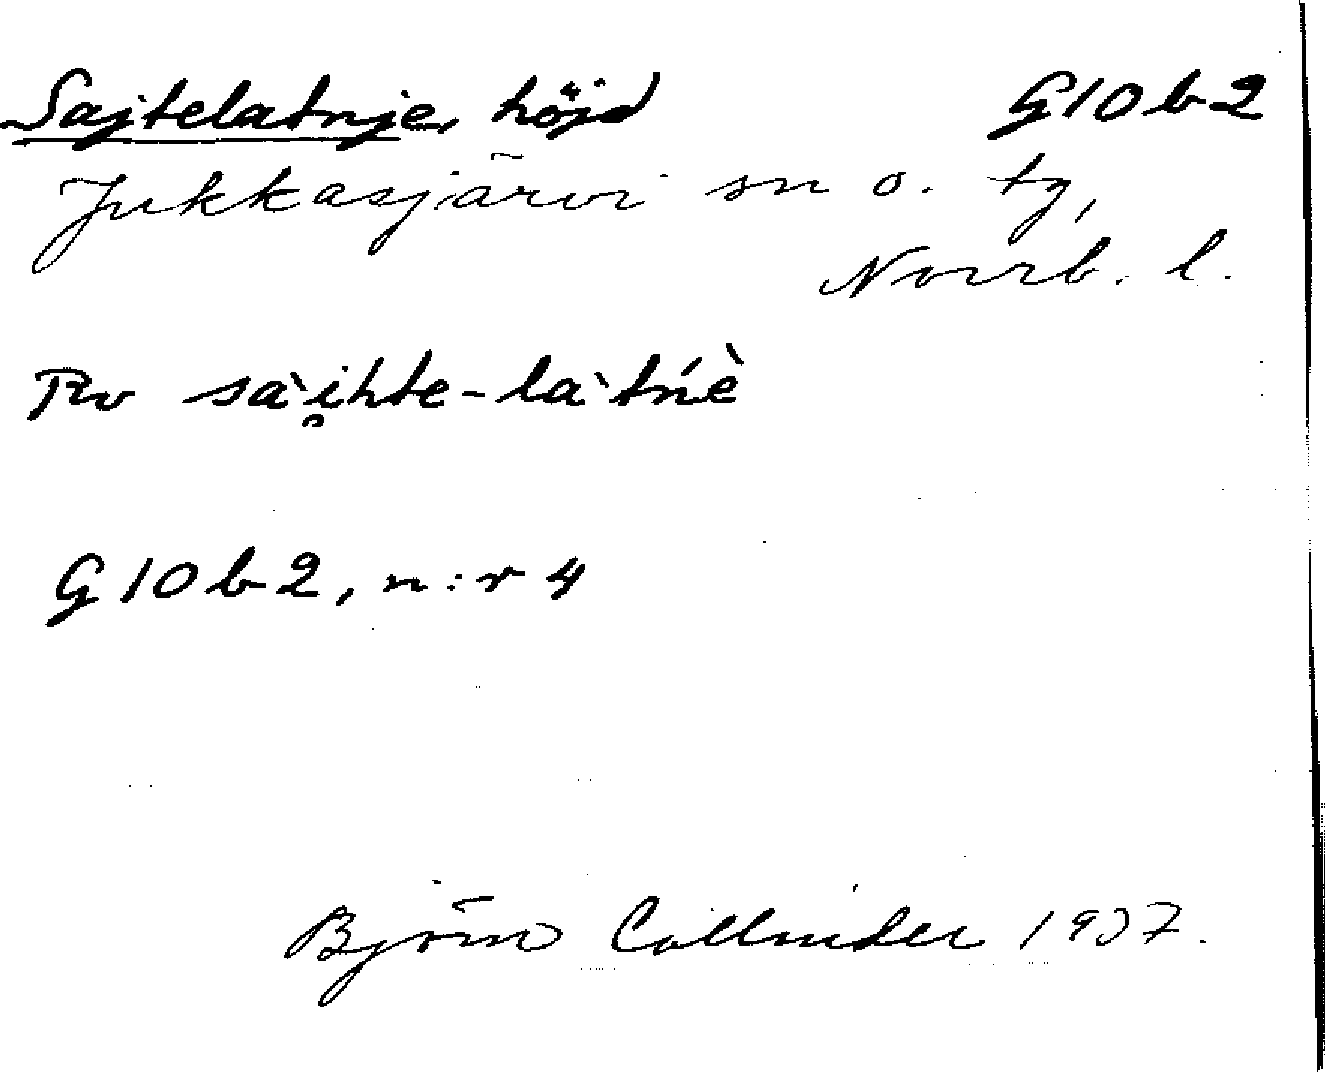 Sajtelatnje, höjd G10b2
Jukkasjärvi sn o. tg,
Norrb. l.
Rv sài̯hte-làtńè
G10b2, n:r 4
Björn Collinder 1937.